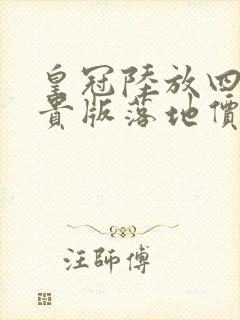 皇冠陸放四
貴版落地價
汪師傅